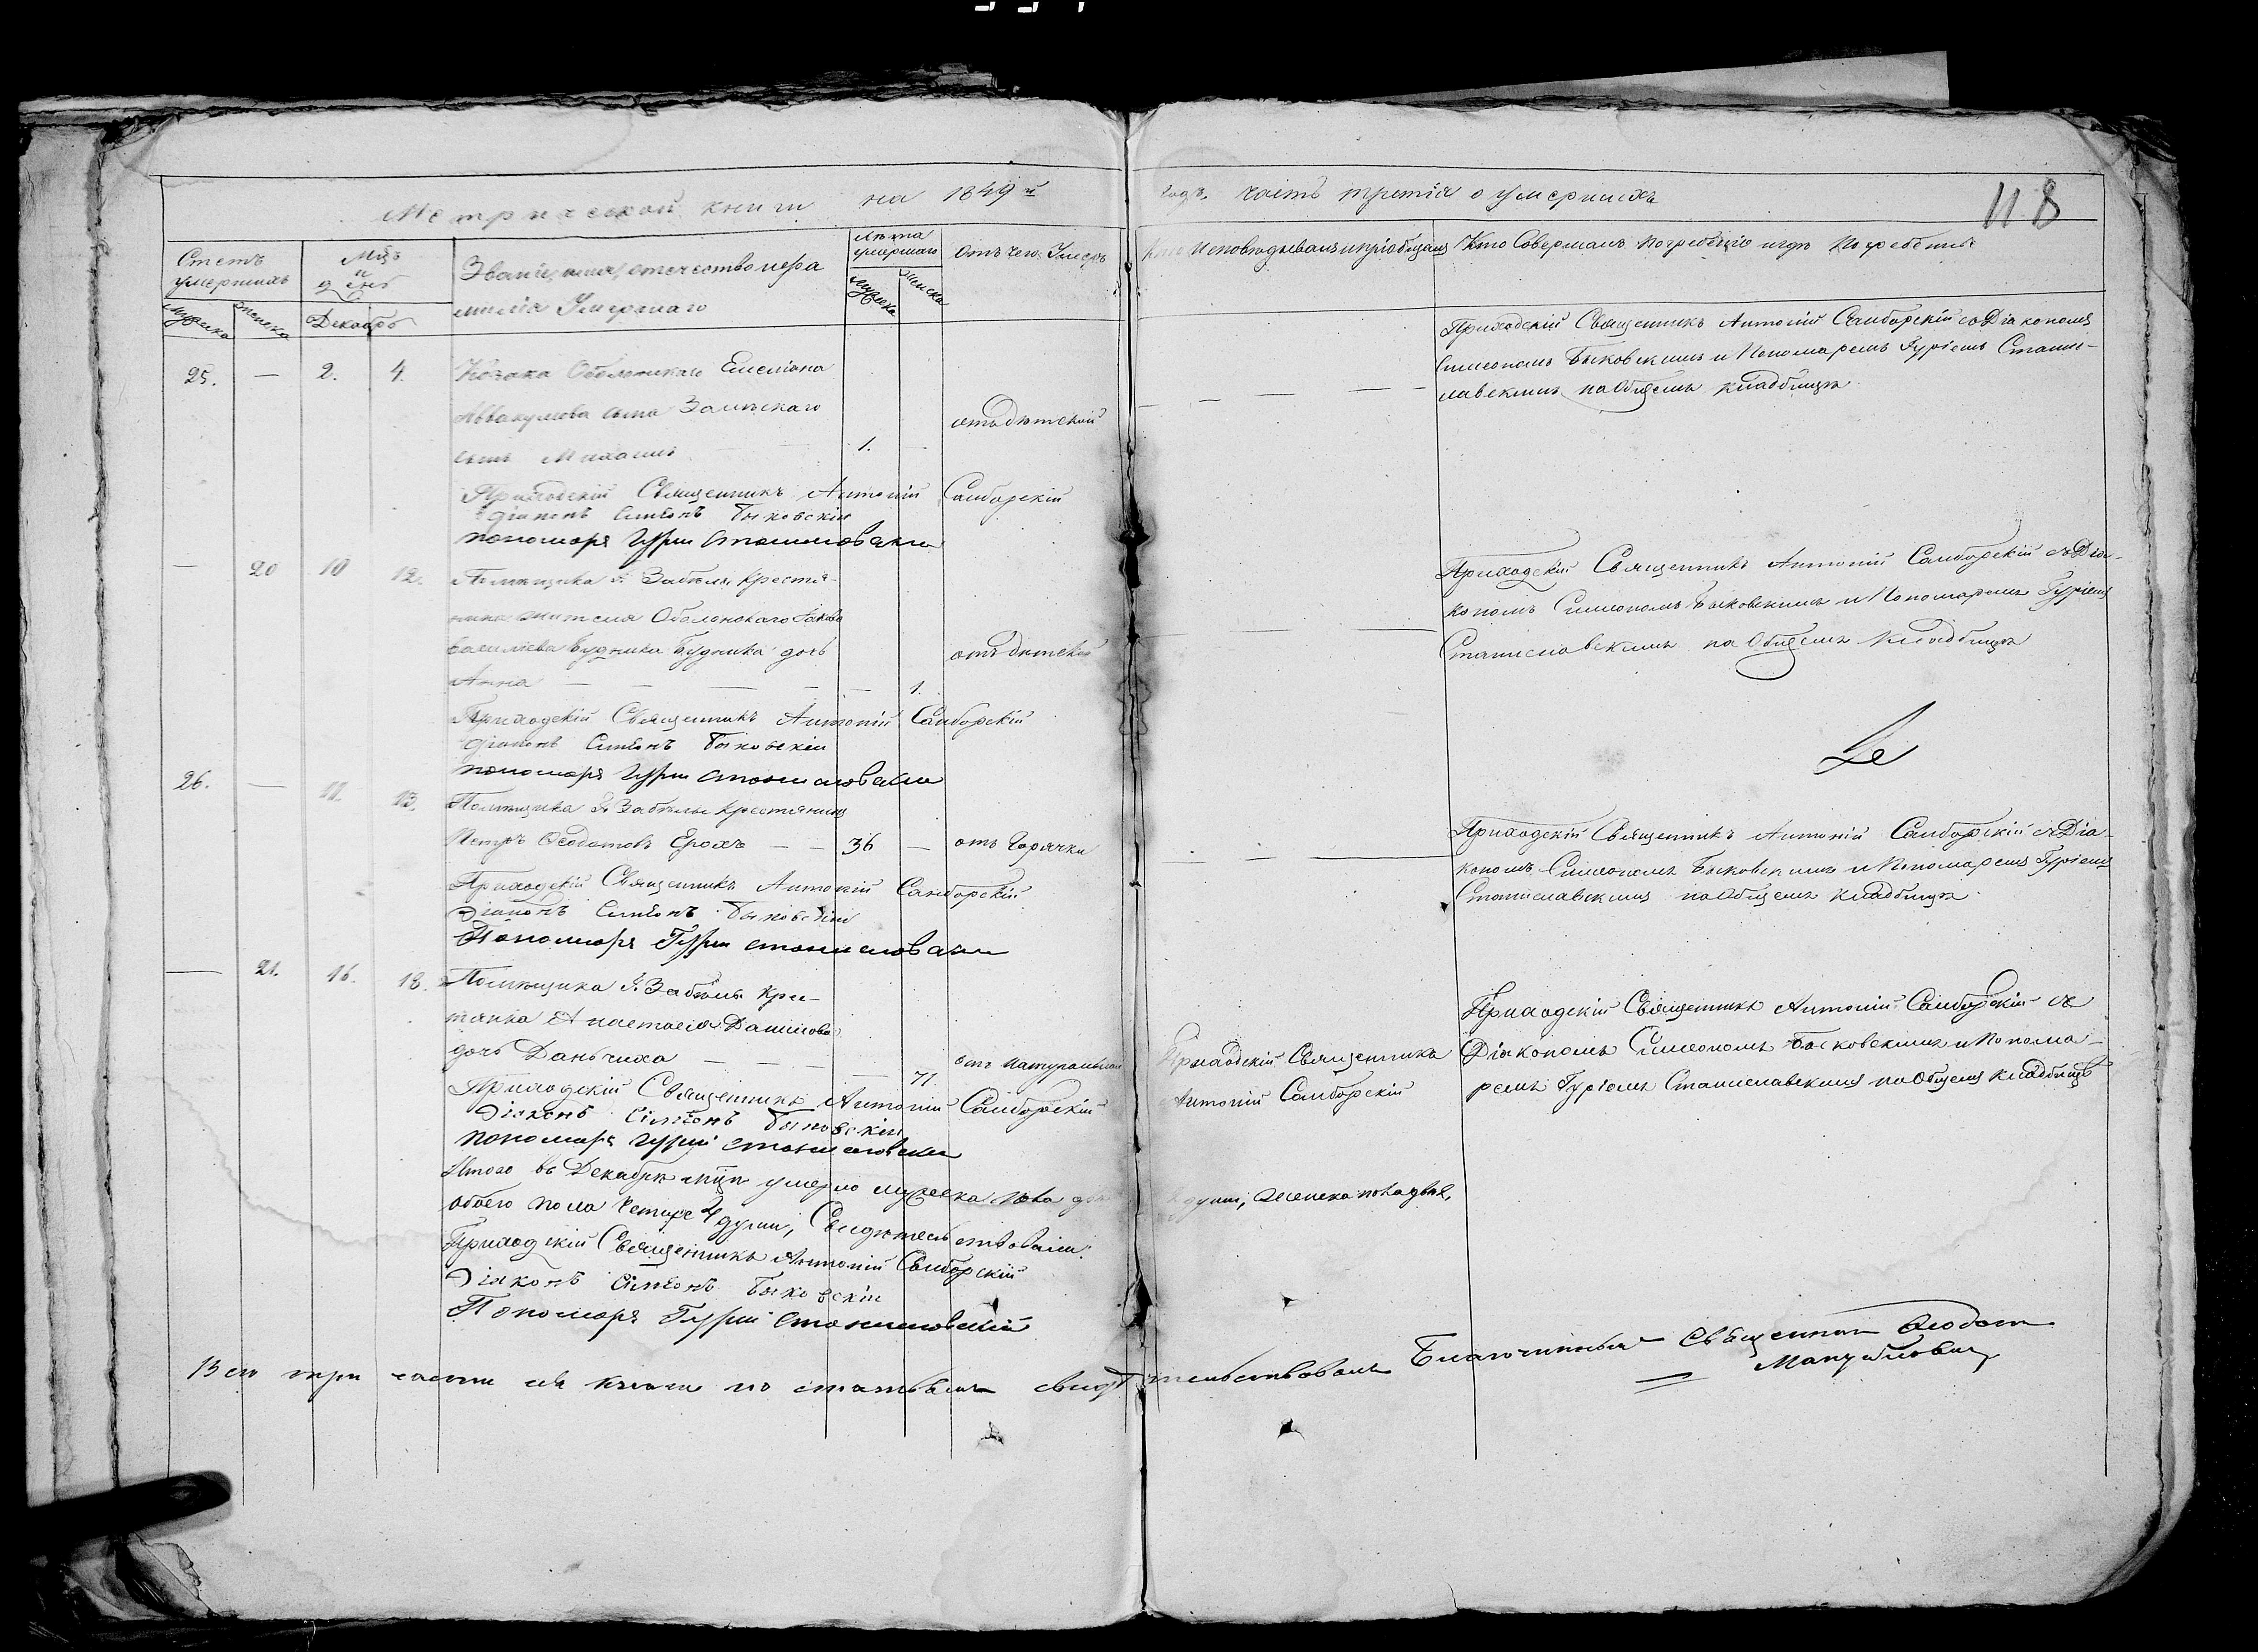 Метрической книги на 1849й годъ. часть третія о умершихъ 118
Счетъ умершихъ
Мцъ и день
Званіе, имя, отечество и фамилія Умершаго
Лѣта умершаго
Отъ чего Умеръ
Кто Исповѣдывалъ и пріобщалъ
Кто Совершалъ Погребеніе и гдѣ Погребены
мужеска женска Декабрь мужеска женска
25. — 2. 4. Козака Оболонскаго Емеліана
Аввакумова сына
сынъ Михаилъ 1. — отъ дѣтской
Приходскій Священникъ Антоній Самборскій съ Діакономъ
Симеономъ Быковскимъ и Пономаремъ Гуріемъ Станис-
лавскимъ на Общемъ кладбищѣ
Приходскій Священникъ Антоній Самборскій
Діаконъ Симеонъ Быковскій
пономарь Гурій Станиславскій
— 20 10 12. Помѣщика Забѣлы крестья-
нина жителя Оболонскаго Якова
Василіева Будника дочь
Анна — — — — — 1. отъ дѣтской
Приходскій Священникъ Антоній Самборскій съ Діа-
кономъ Симеономъ Быковскимъ и Пономаремъ Гуріемъ
Станиславскимъ на Общемъ кладбищѣ
Приходскій Священникъ Антоній Самборскій
Діаконъ Симеонъ Быковскій
пономарь Гурій Станиславскій
26. — 11. 13. Помѣщика Забѣлы крестянинъ
Петръ Ѳеодотовъ Ерохъ — — 36 — отъ Горячки
Приходскій Священникъ Антоній Самборскій съ Діа-
кономъ Симеономъ Быковскимъ и Пономаремъ Гуріемъ
Станиславскимъ на Общемъ кладбищѣ
Приходскій Священникъ Антоній Самборскій
Діаконъ Симеонъ Быковскій
Пономарь Гурій Станиславскій
— 21. 16. 18. Помѣщика Забѣлы Крес-
тянка Анастасія Данилова
дочь Даньчиха — — — — 71. отъ натуральной
Приходскій Священникъ
Антоній Самборскій
Приходскій Священникъ Антоній Самборскій съ
Діакономъ Симеономъ Быковскимъ и Понома-
ремъ Гуріемъ Станиславскимъ на Общемъ кладбищѣ
Приходскій Священникъ Антоній Самборскій
Діаконъ Симеонъ Быковскій
пономарь Гурій Станиславскій
Итого въ Декабрѣ мцѣ умерло мужеска пола души, женска пола двѣ,
обоего пола Четыре 4 души, Свидѣтельствовали:
Приходскій Священникъ Антоній Самборскій
Діаконъ Симеонъ Быковскій
Пономарь Гурій Станиславскій
Всѣ три части сей книги по статьямъ свидѣтельствовалъ Благочинный Священникъ Ѳеодотъ
Мануйловичъ